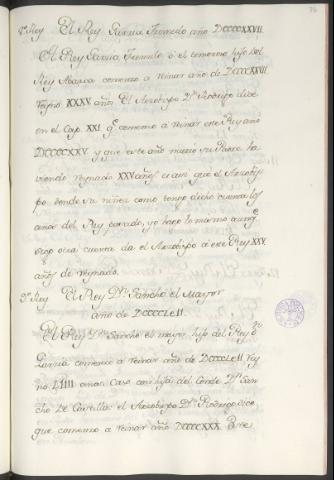 76
8º Rey El Rey Garcia Tremulo año DCCCCXXVII
El Rey Garcia Tremulo ò el temeroso hijo del
Rey Abarca comenzo a reinar año de DCCCCXXVII
Reyno XXXV años. El Arzobispo Dn Rodrigo dice
en el Cap. XXI qe comenzo a reinar este Rey año
DCCCCXXV y que este año murio su Padre ha
viendo reynado XXV años es asi que el Arzobis
po desde su niñez como tengo dicho cuenta los
años del Rey pasado, yo hago lo mismo aunqe
sigo otra cuenta da el Arzobispo à este Rey XXV
años de reynado.
9º Rey El Rey Dn Sancho el Mayor
año de DCCCCLII.
El Rey Dn Sancho el mayor hijo del Rey Dn
Garcia comenzo a reinar año de DCCCCLII Rey
no LIIII años. Caso con hija del Conde Dn San
cho de Castilla: el Arzobispo Dn Rodrigo dice
que comenzo a reinar año DCCCCXXX. Este